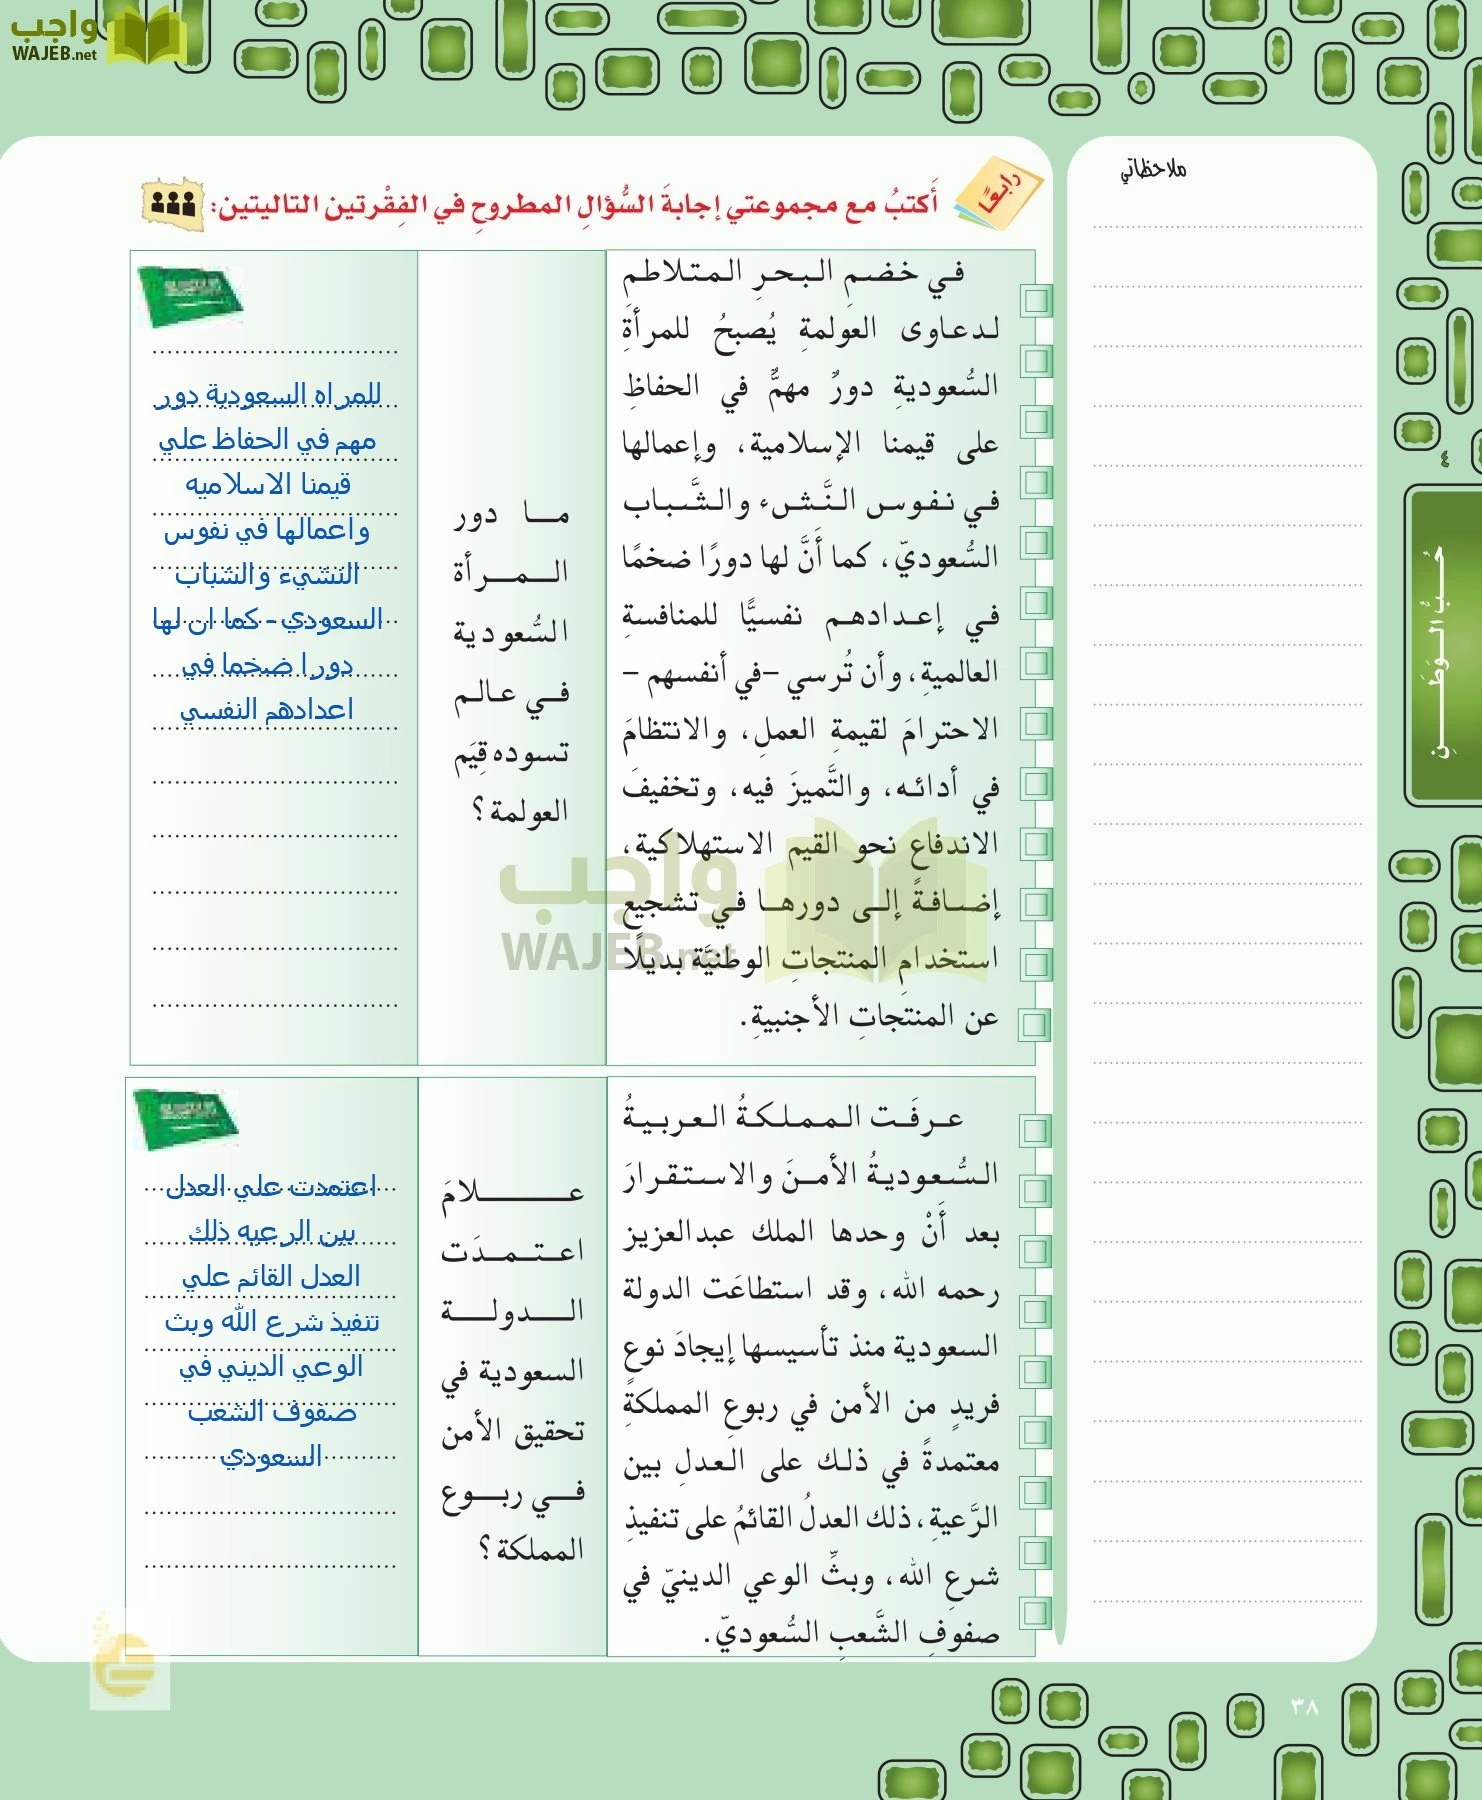 واجب
WAJEB.net
ملاحظاتي
رابعًا
أَكتبُ مع مجموعتي إجابةَ السُّؤالِ المطروحِ في الفِقْرتين التاليتين:
في خضمِ البحرِ المتلاطمِ
لدعاوى العولمةِ يُصبحُ للمرأةِ
السُّعوديةِ دورٌ مهمٌّ في الحفاظِ
على قيمنا الإسلامية، وإعمالها
في نفوس النَّشء والشَّباب
السُّعوديّ، كما أَنَّ لها دورًا ضخمًا
في إعدادهم نفسيًّا للمنافسةِ
العالميةِ، وأن تُرسي -في أنفسهم -
الاحترامَ لقيمةِ العملِ، والانتظامَ
في أدائه، والتَّميزَ فيه، وتخفيفَ
الاندفاعِ نحو القيم الاستهلاكية،
إضافةً إلى دورها في تشجيعِ
استخدامِ المنتجاتِ الوطنيَّة بديلًا
عن المنتجاتِ الأجنبيةِ.
ما دور
المرأة
السُّعودية
في عالم
تسوده قِيَم
العولمة؟
للمراه السعودية دور
مهم في الحفاظ علي
قيمنا الاسلاميه
واعمالها في نفوس
النشيء والشباب
السعودي - كما ان لها
دورا ضخما في
اعدادهم النفسي
واجب
WAJEB.net
عرفَت المملكةُ العربيةُ
السُّعوديةُ الأمنَ والاستقرارَ
بعد أَنْ وحدها الملك عبدالعزيز
رحمه الله، وقد استطاعَت الدولة
السعودية منذ تأسيسها إيجادَ نوعٍ
فريدٍ من الأمن في ربوعِ المملكةِ
معتمدةً في ذلك على العدلِ بين
الرَّعيةِ، ذلك العدلُ القائمُ على تنفيذِ
شرعِ الله، وبثِّ الوعي الدينيّ في
صفوفِ الشَّعبِ السُّعوديّ.
علامَ
اعتمدَت
الدولة
السعودية في
تحقيق الأمن
في ربوع
المملكة؟
اعتمدت علي العدل
بين الرعيه ذلك
العدل القائم علي
تنفيذ شرع الله وبث
الوعي الديني في
صفوف الشعب
السعودي
٤
حُبُّ الوَطَنِ
٣٨